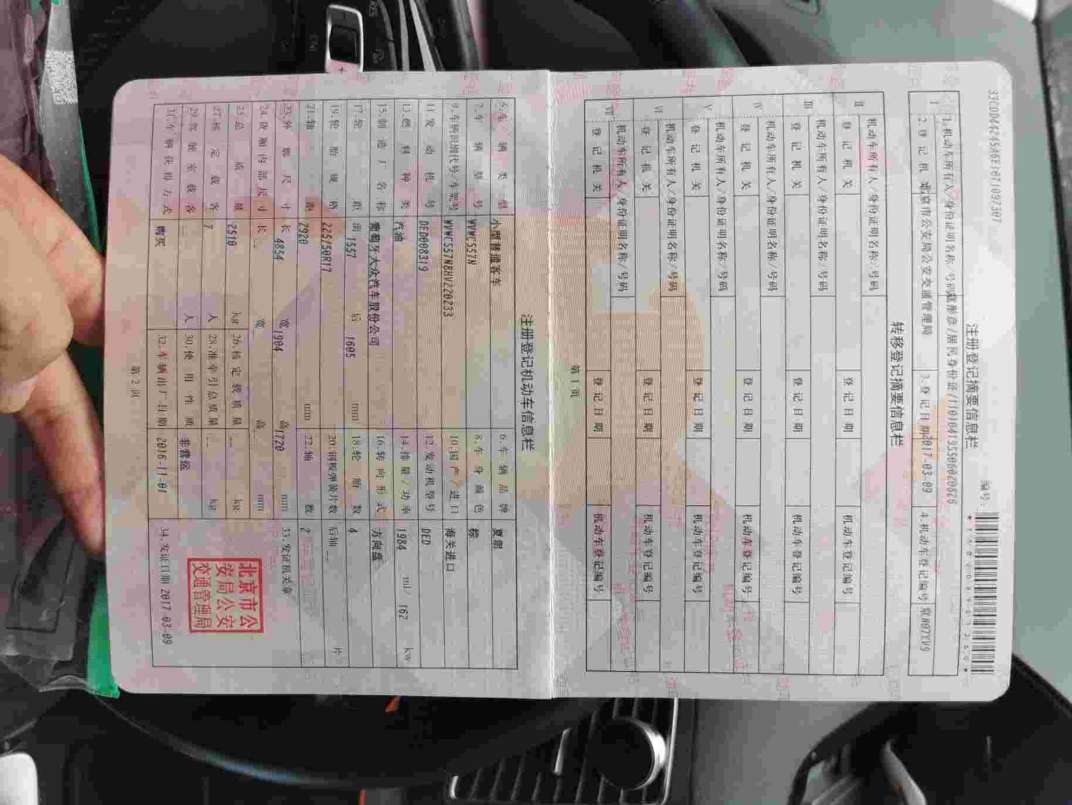 注册登记摘要信息栏
编号:
1.机动车所有人/身份证明名称/号码 /居民身份证/110104195506020526
2.登记机关 北京市公安局公安交通管理局 3.登记日期 2017-03-09 4.机动车登记编号
转移登记摘要信息栏
II 机动车所有人/身份证明名称/号码
登记机关 登记日期 机动车登记编号
III 机动车所有人/身份证明名称/号码
登记机关 登记日期 机动车登记编号
IV 机动车所有人/身份证明名称/号码
登记机关 登记日期 机动车登记编号
V 机动车所有人/身份证明名称/号码
登记机关 登记日期 机动车登记编号
VI 机动车所有人/身份证明名称/号码
登记机关 登记日期 机动车登记编号
VII 机动车所有人/身份证明名称/号码
登记机关 登记日期 机动车登记编号
第 1 页
注册登记机动车信息栏
5.车辆类型 小型普通客车 6.车辆品牌 夏朗
7.车辆型号 WVWCS57N 8.车身颜色 棕
9.车辆识别代号/车架号 WVWCS57N8HV220233 10.国产/进口 海关进口
11.发动机号 DED008319 12.发动机型号 DED
13.燃料种类 汽油 14.排量/功率 1984 ml/ 162 kw
15.制造厂名称 葡萄牙大众汽车股份公司 16.转向形式 方向盘
17.轮距 前 1557 后 1605 mm 18.轮胎数 4
19.轮胎规格 225/50R17 20.钢板弹簧片数 后轴 -- 片
21.轴距 2920 mm 22.轴数 2
23.外廓尺寸 长 4854 宽 1904 高 1720 mm 33.发证机关章
24.货厢内部尺寸 长 宽 高 mm
25.总质量 2510 kg 26.核定载质量 -- kg
27.核定载客 7 人 28.准牵引总质量 -- kg
29.驾驶室载客 -- 人 30.使用性质 非营运
31.车辆获得方式 购买 32.车辆出厂日期 2016-11-01 34.发证日期 2017-03-09
北京市公
安局公安
交通管理局
第 2 页